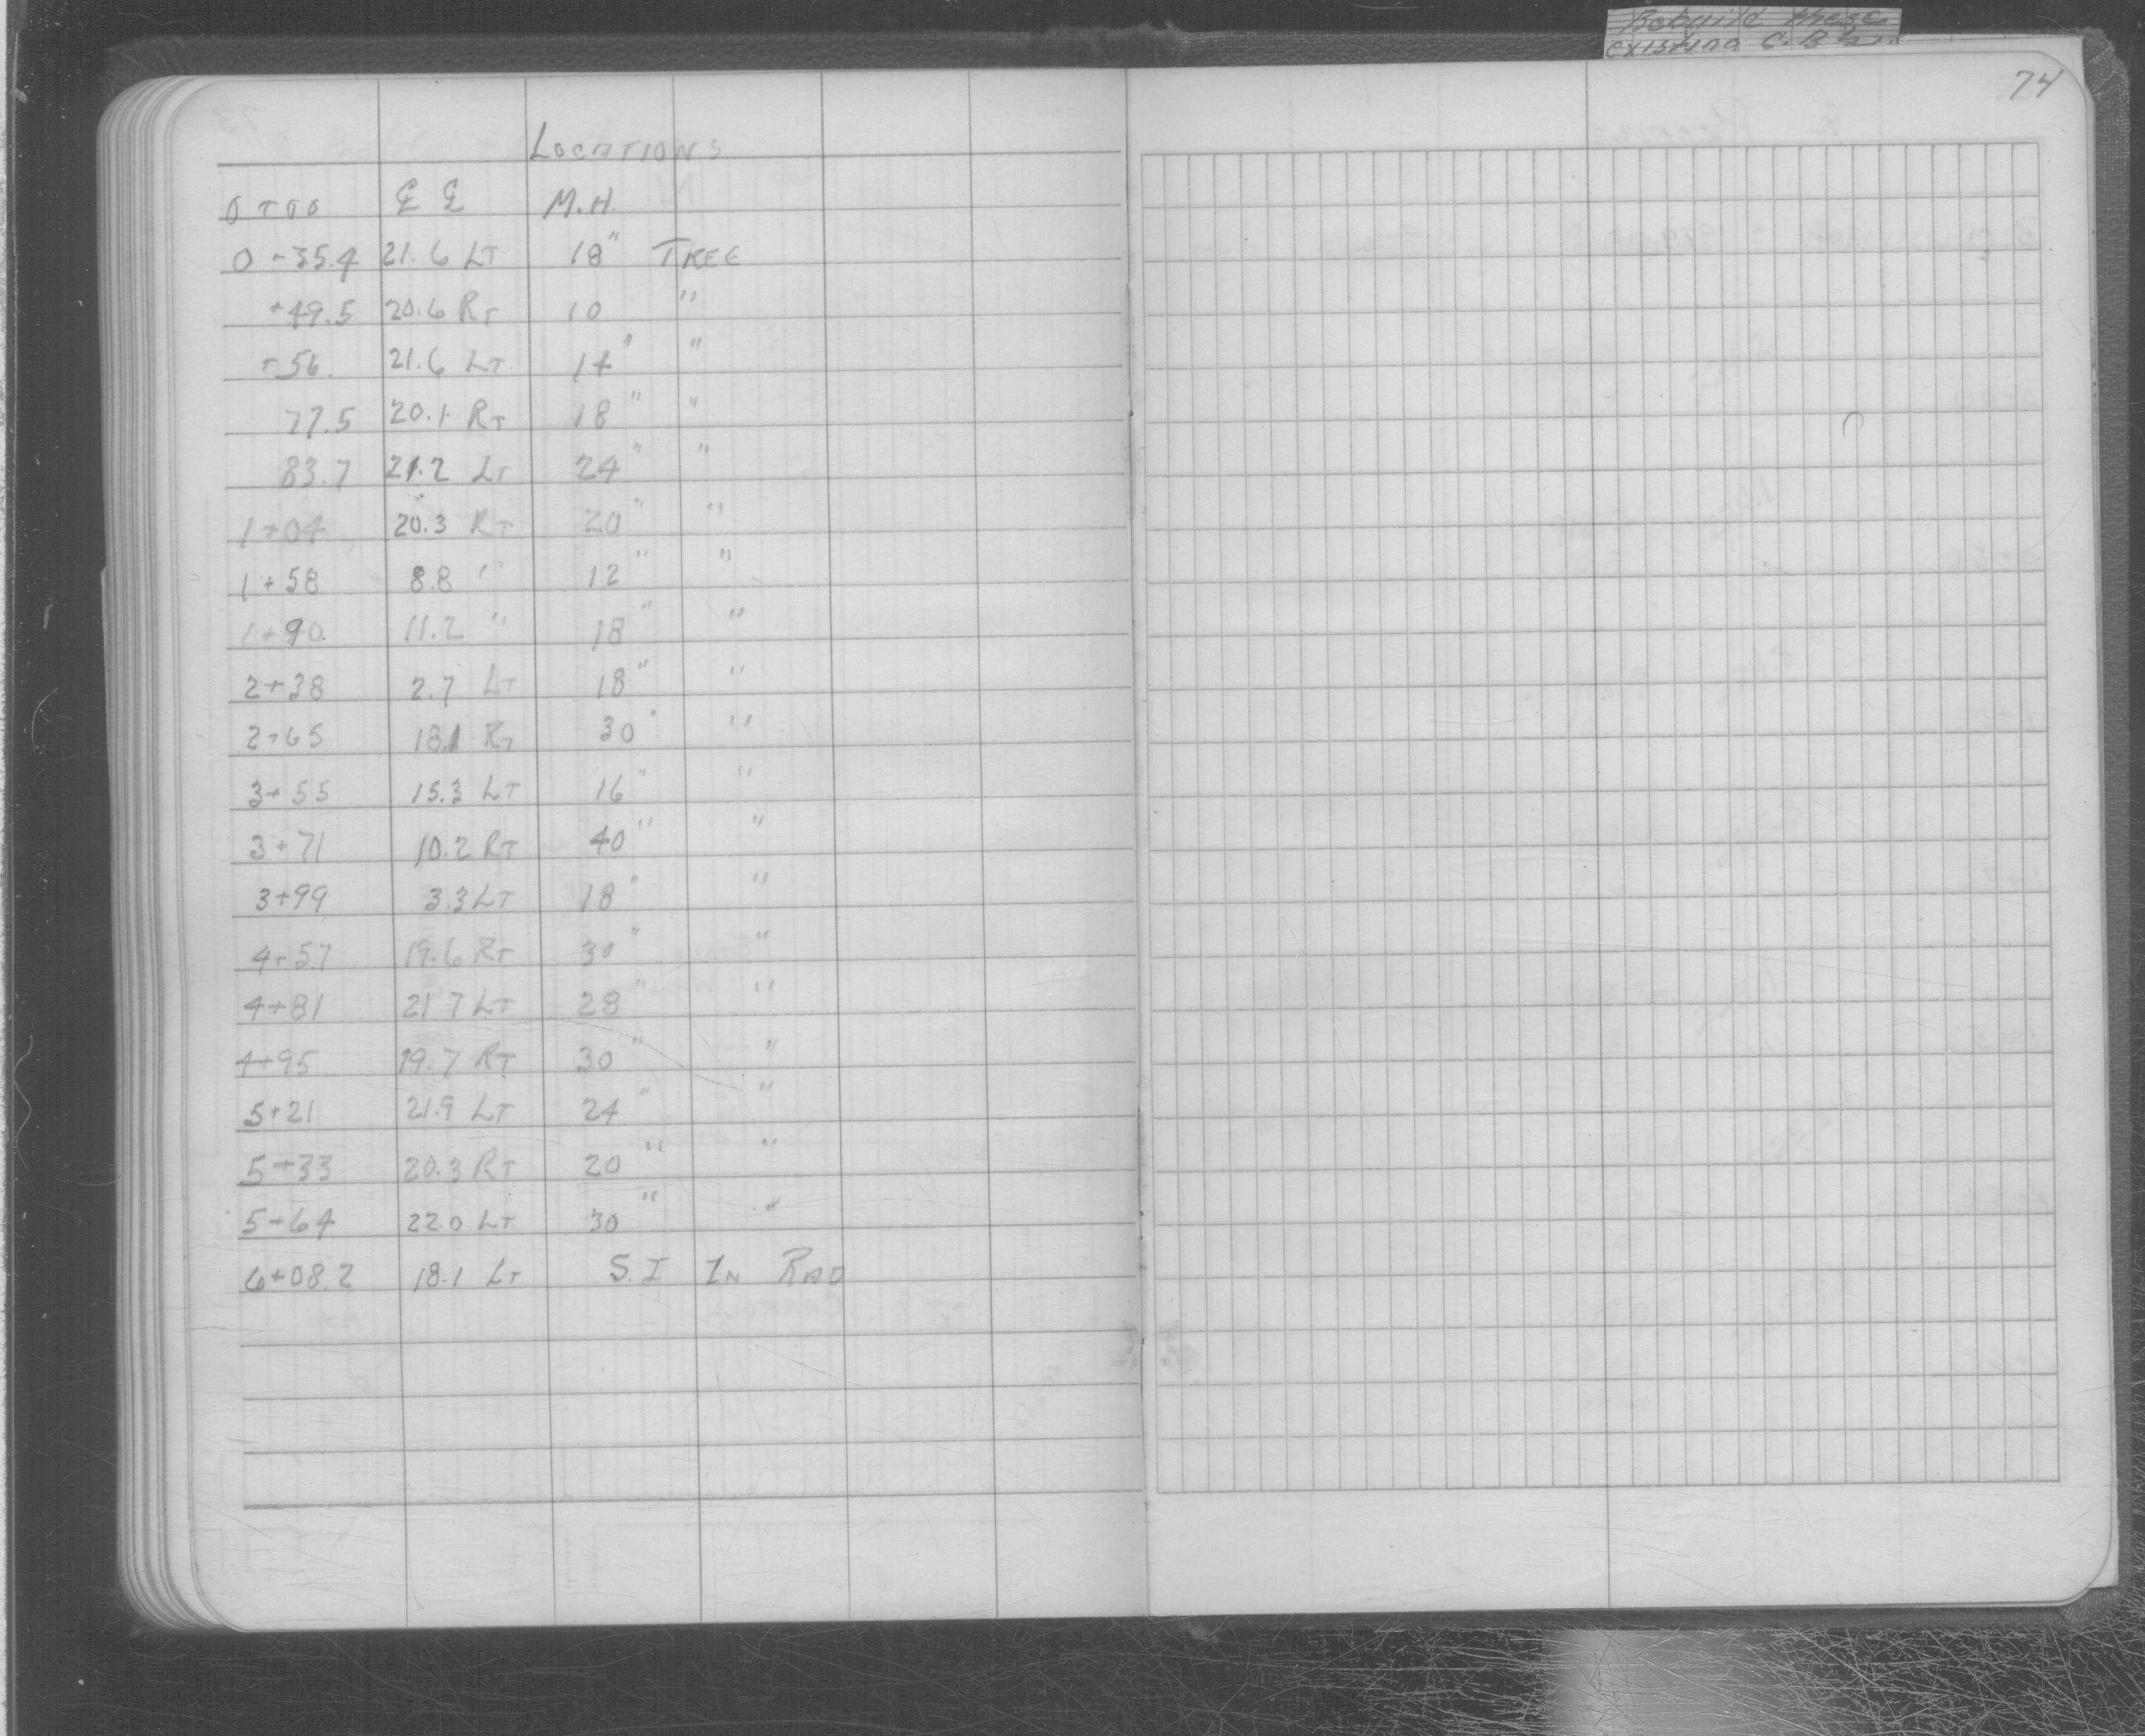 Rebuild these
existing C.B's.
74
LOCATIONS
0+00 ℄ ℄ M.H.
0+35.4 21.6 LT 18" TREE
+49.5 20.6 RT 10 "
+56. 21.6 LT 14" "
77.5 20.1 RT 18" "
83.7 21.2 LT 24" "
1+04 20.3 RT 20" "
1+58 8.8 " 12" "
1+90 11.2 " 18" "
2+38 2.7 LT 18" "
2+65 18.1 RT 30" "
3+55 15.3 LT 16" "
3+71 10.2 RT 40" "
3+99 3.3 LT 18" "
4+57 19.6 RT 30" "
4+81 21.7 LT 28" "
4+95 19.7 RT 30" "
5+21 21.9 LT 24" "
5+33 20.3 RT 20" "
5+64 22.0 LT 30" "
6+08.2 18.1 LT S.I IN RAD